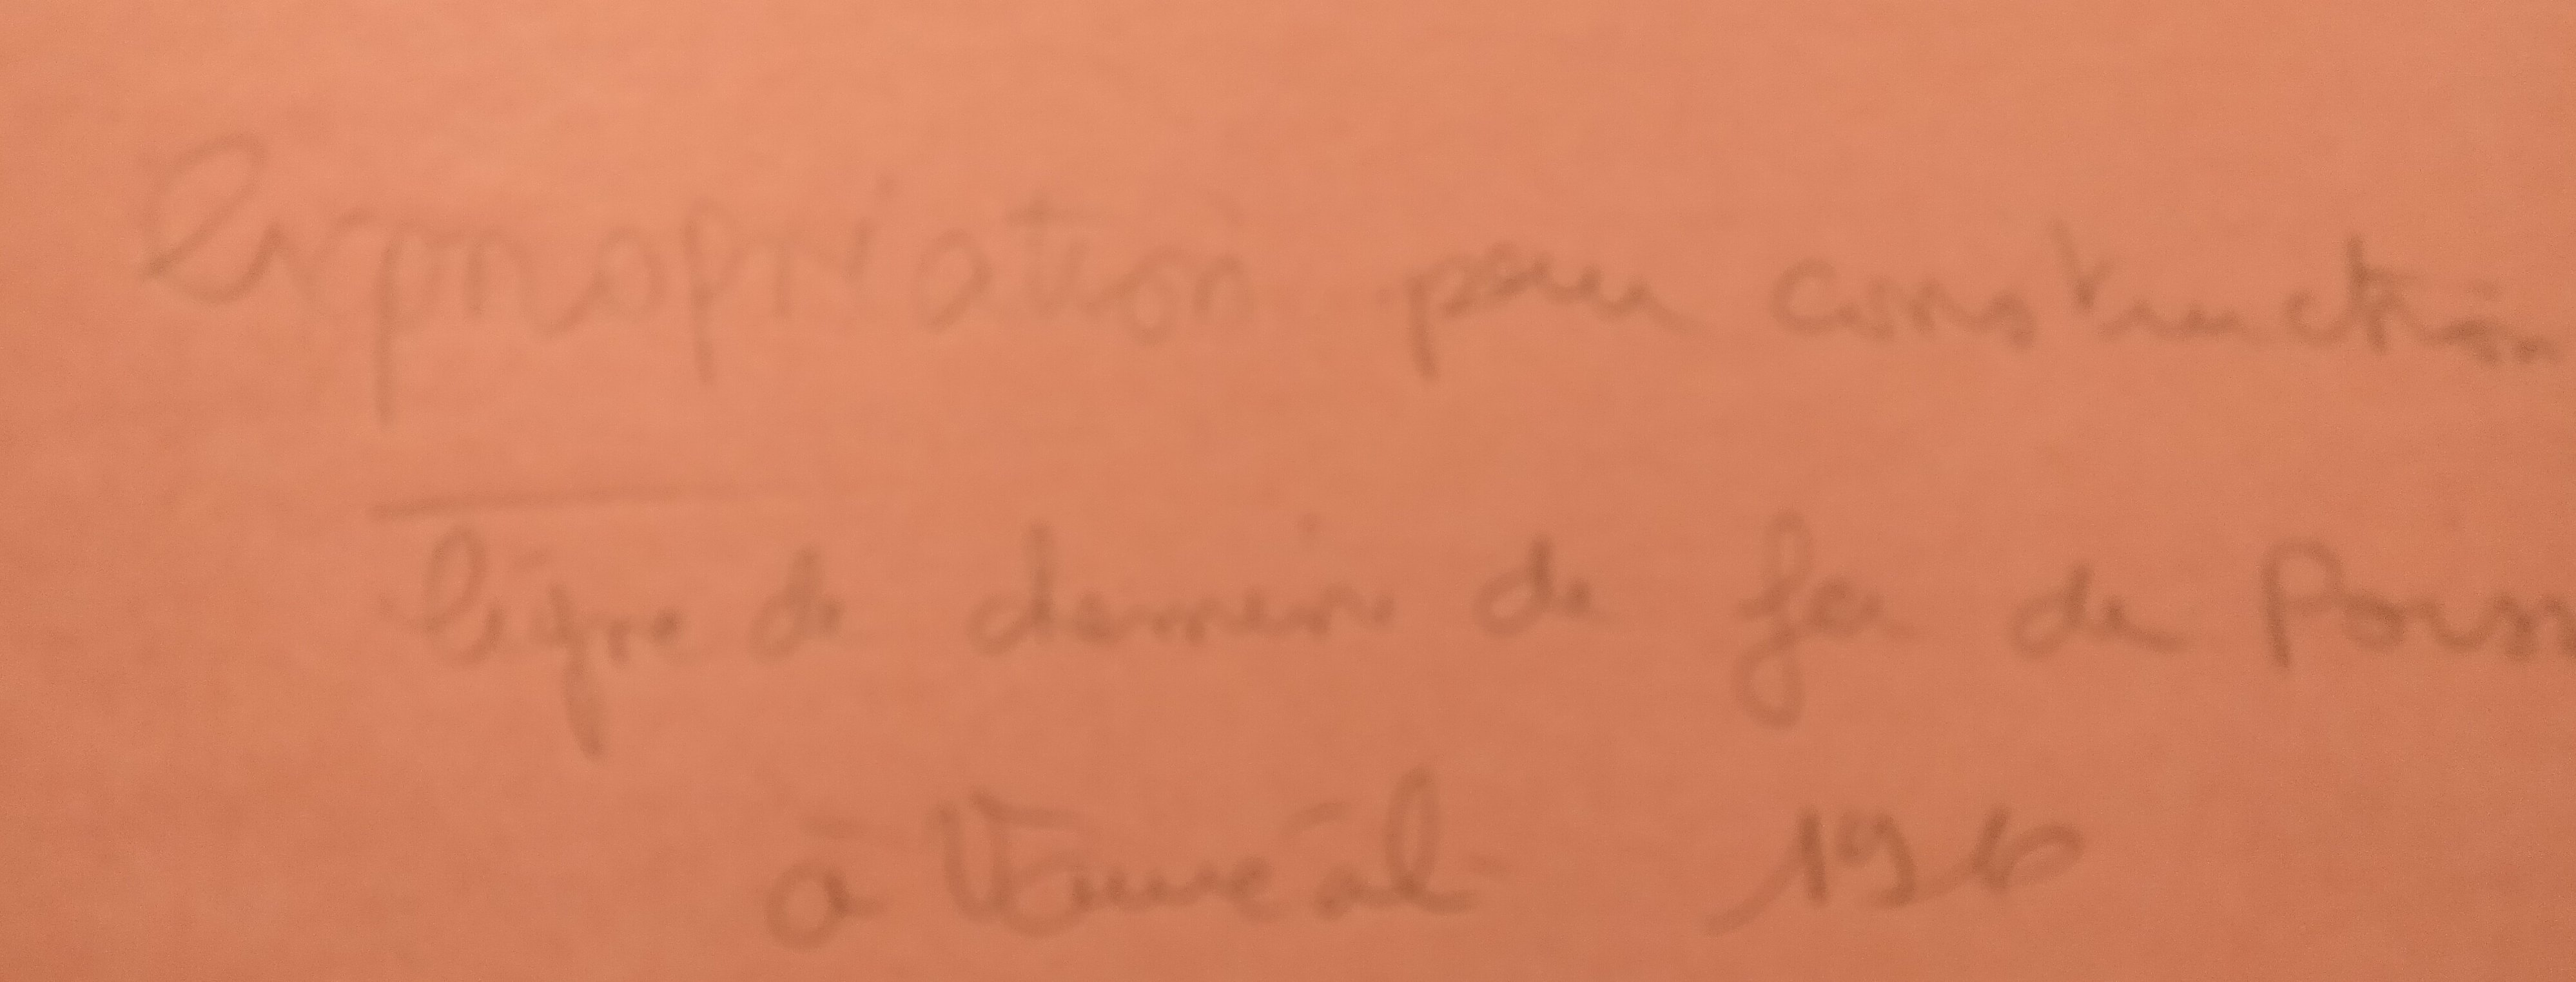 Expropriation pour construction
ligne de chemin de fer de
à Vauréal